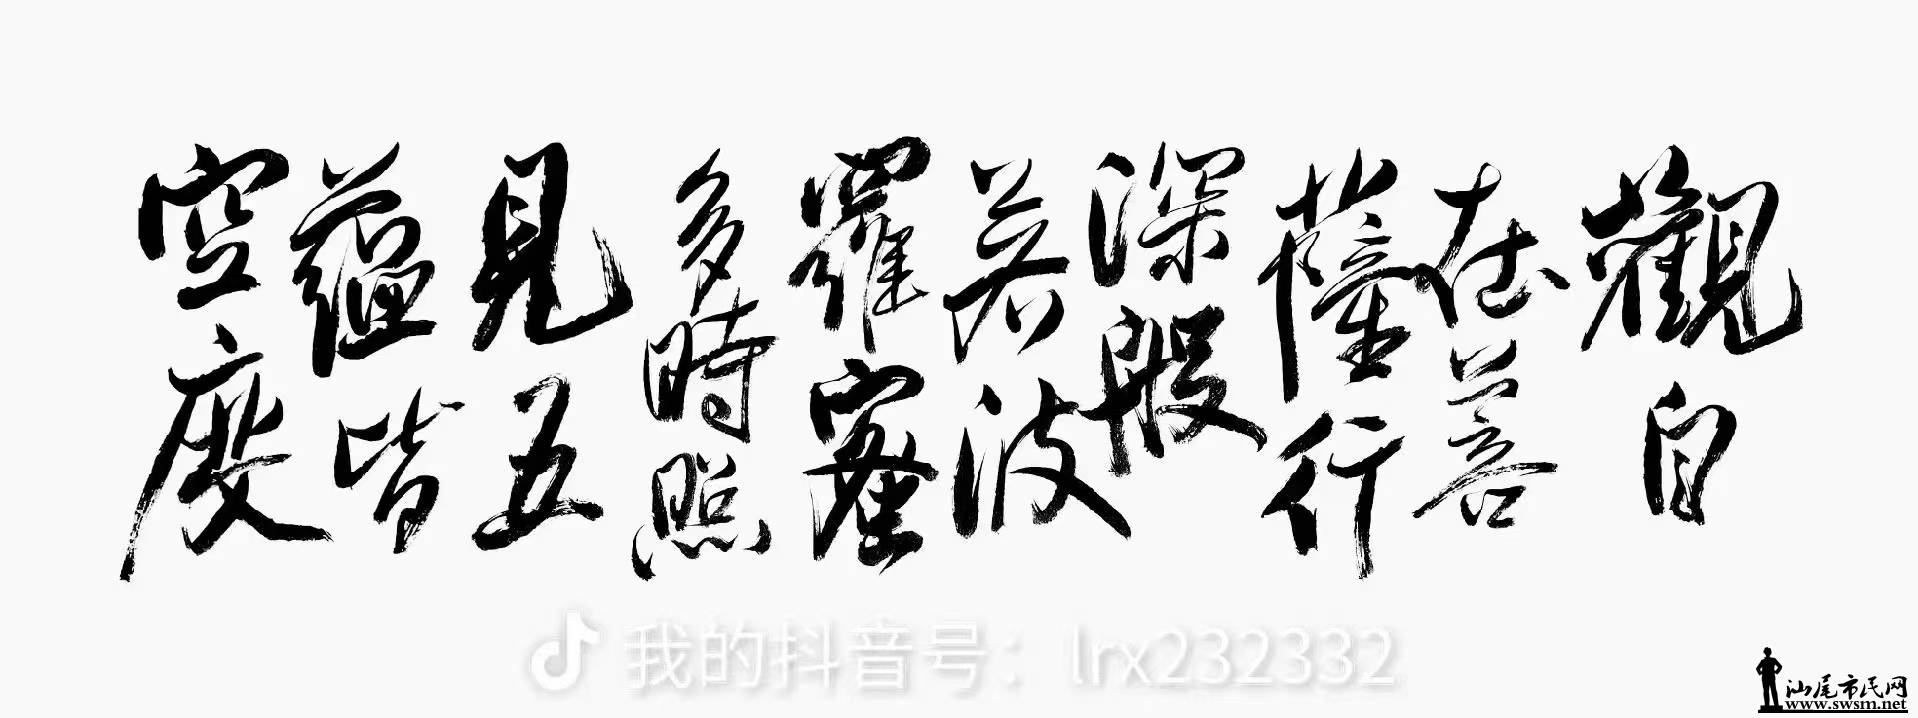 觀自
在菩
薩行
深般
若波
羅蜜
多時照
見五
蘊皆
空度
我的抖音号：lrx232332
汕尾市民网
www.swsm.net